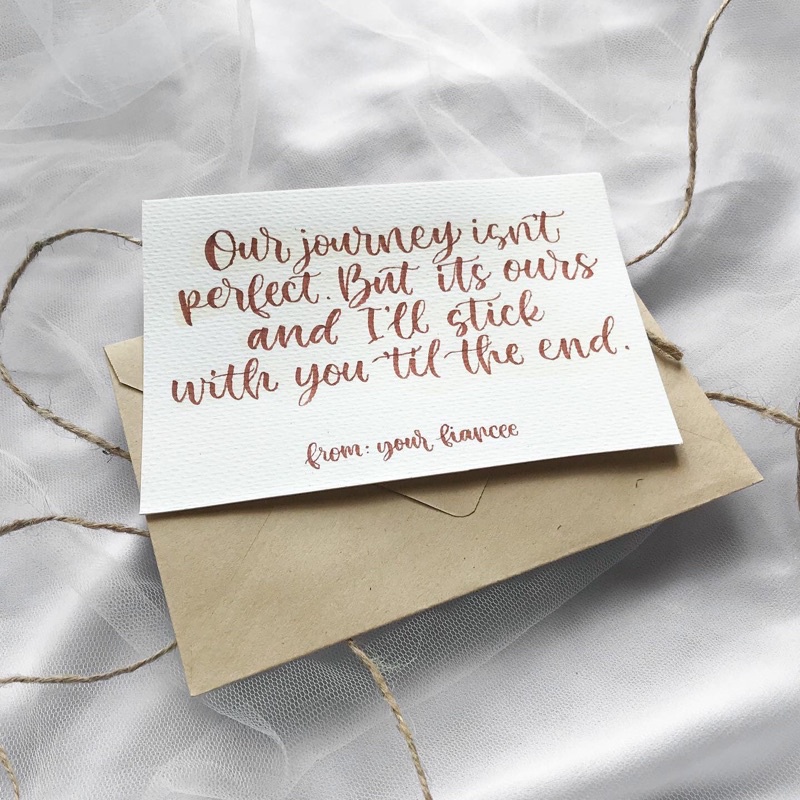 Our journey isn't
perfect. But its ours
and I'll stick
with you 'til the end.
from: your fiancee